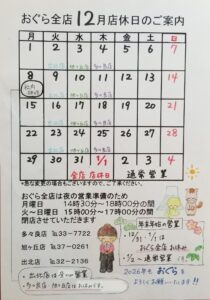 おぐら全店 12月店休日のご案内
月 火 水 木 金 土 日
1 2 3 4 5 6 7
8 9 10 11 12 13 14
15 16 17 18 19 20 21
22 23 24 25 26 27 28
29 30 31 1/1 2 3 4
全店 店休日 通常営業
*急な変更の場合もございますので、ご了承ください。
おぐら全店は夜の営業準備のため
月曜日 14時30分~18時00分の間
火~日曜日 15時00分~17時00分の間
閉店させていただきます
多々良店 ☎33-7722
旭ヶ丘店 ☎37-0261
出北店 ☎22-2136
年末年始の営業
12/31~1/1は
おぐら全店お休み
1/2~通常営業
2026年も おぐらを
よろしくお願いします!!